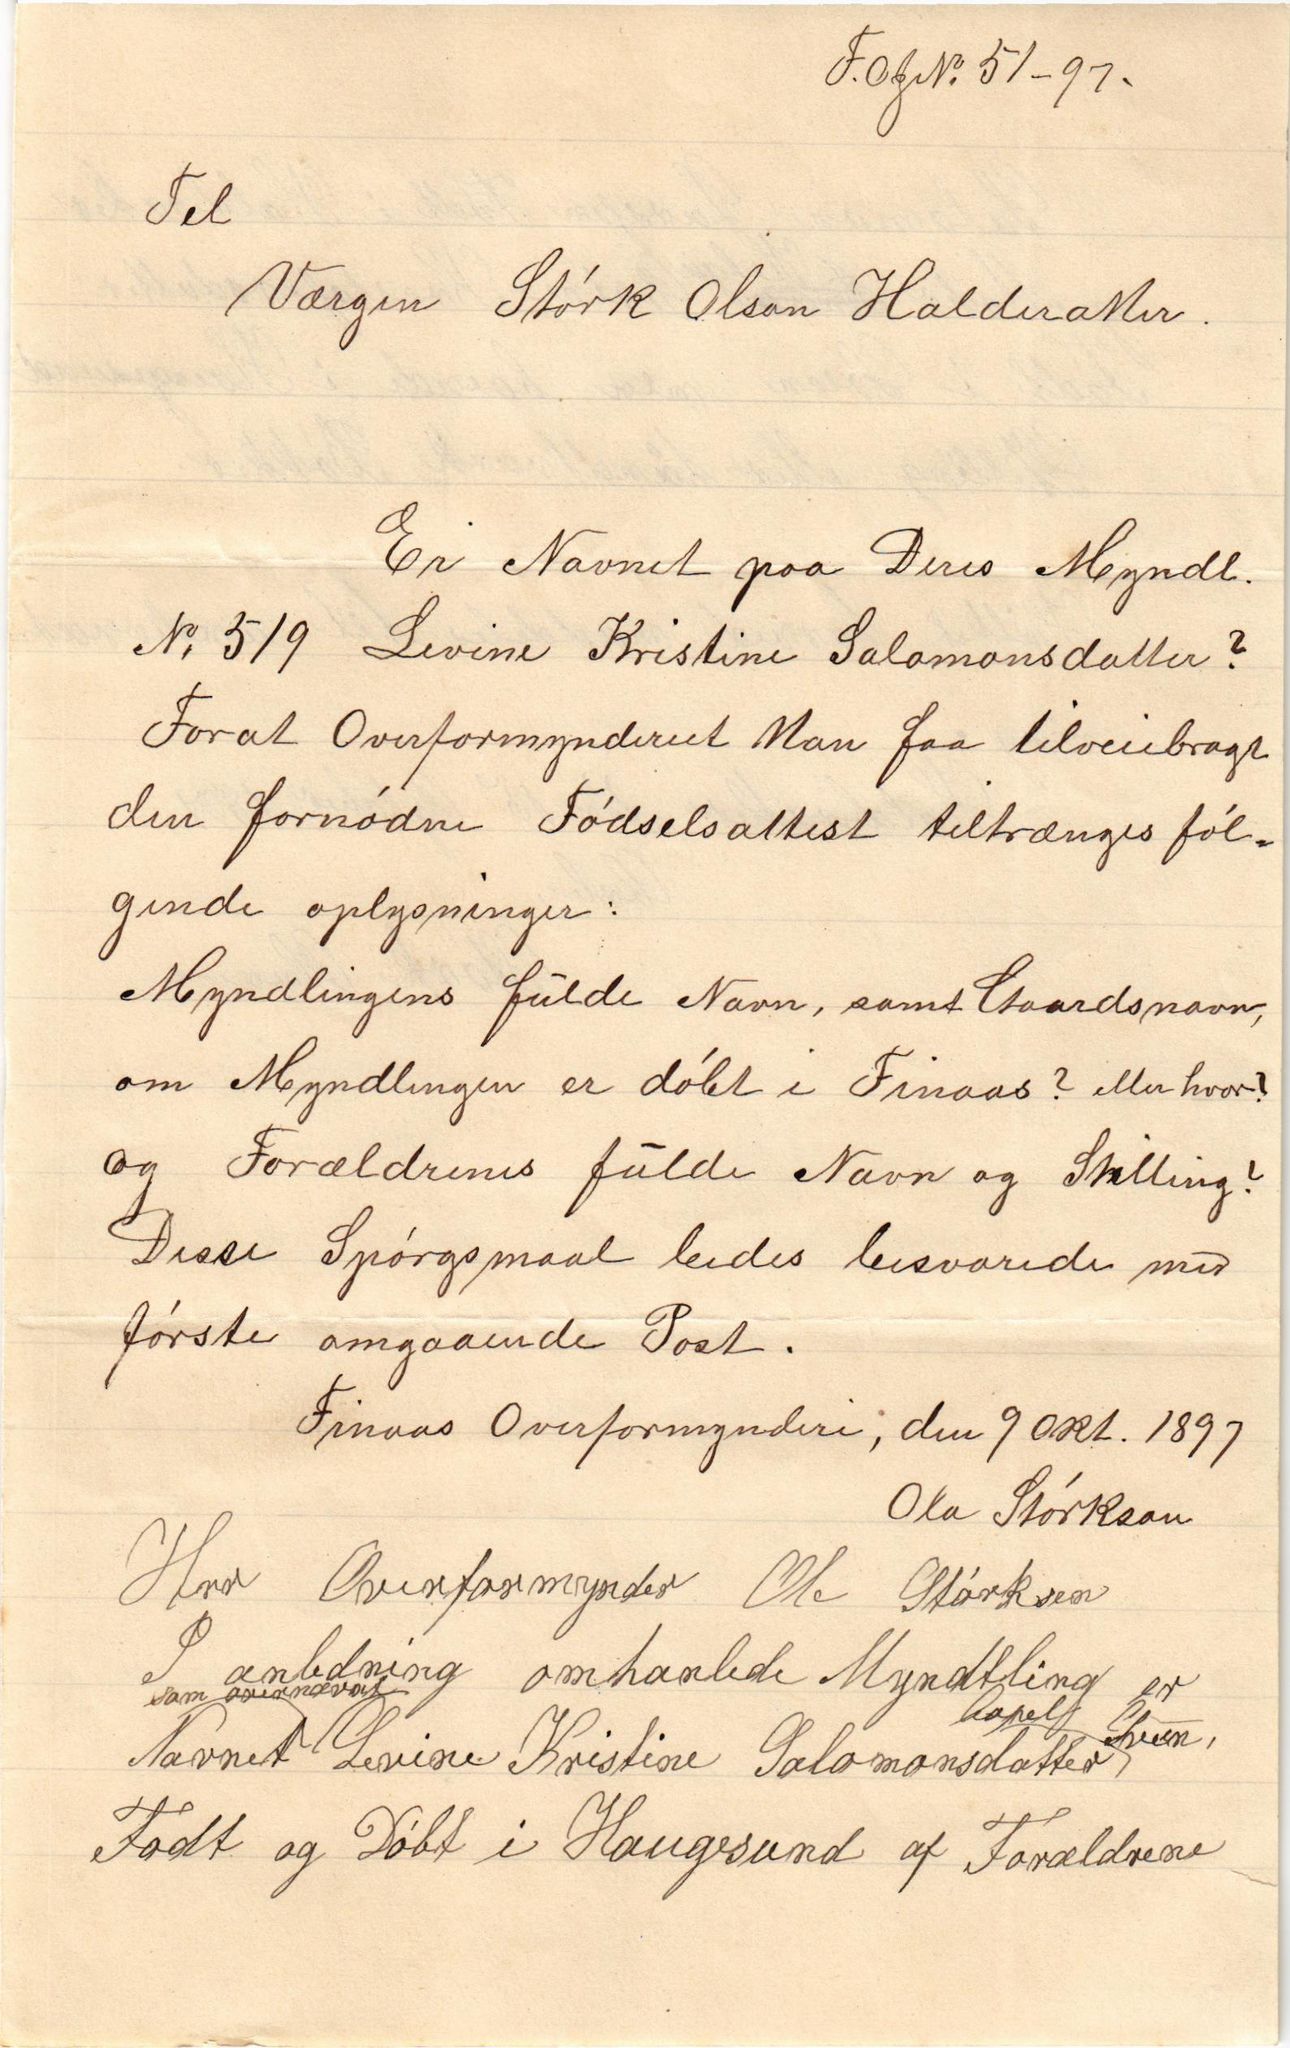 F.Of No. 51-97.
Til
Værgen Störk Olson Halderaker.
Er Navnet paa Deres Myndl.
No. 519 Levine Kristine Salomonsdatter?
Forat Overformynderiet kan faa tilveiebragt
den fornödne Födselsattest tiltrænges föl-
gende oplysninger:
Myndlingens fulde Navn, samt Gaardsnavn,
om Myndlingen er döbt i Finaas? eller hvor?
og Forældrenes fulde Navn og Stilling?
Disse Spörgsmaal bedes besvarede med
förste omgaaende Post.
Finaas Overformynderi, den 9 Okt. 1897
Ola Störkson
Herr Overformynder Ole Störksen
I anledning omhanlede Myndtling er
som overnævnt
Navnet Levine Kristine Salomonsdatter,
Födt og Döbt i Haugesund af Forældrene